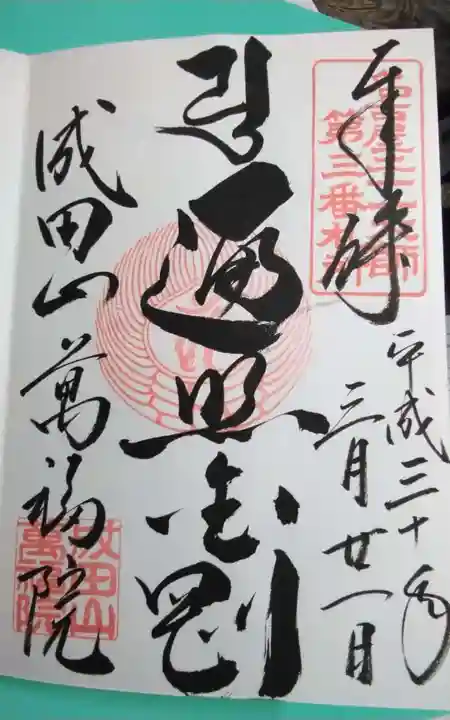 奉拝
平成三十年
三月廿一日
遍照金剛
成田山萬福院
第三番札所
成田山
萬福院